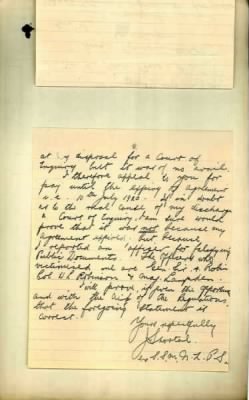 at my disposal for a Court of
Enquiry but it was of no avail.
I therefore appeal to you for
pay until the expiry of Agreement
10th July 1920. If in doubt
as to the real cause of my discharge
a Court of Enquiry I am sure would
prove that it was not because my
agreement expired but because
I reported an officer for falsifying
Public Documents. The Officers who
victimized me are
Col
I will prove, if given the opportunity
and with the aid of the Regulations,
that the foregoing statement is
correct.
Yours respectfully